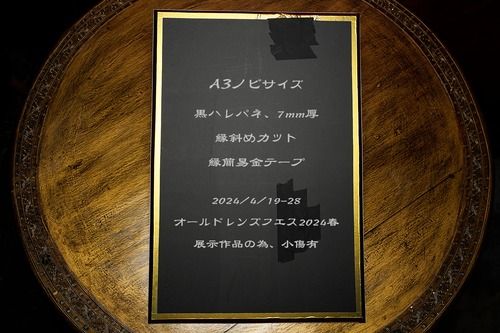 A3ノビサイズ
黒ハレパネ、7mm厚
縁斜めカット
縁簡易金テープ
2024/4/19-28
オールドレンズフエス2024春
展示作品の為、小傷有